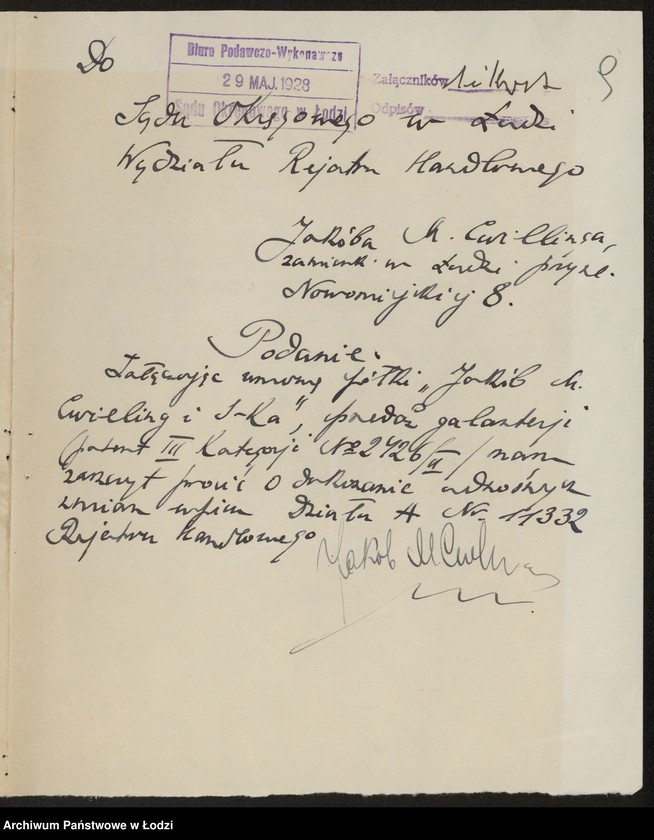 Do
Biuro Podawczo-Wykonawcze
29 MAJ. 1928
Sądu Okręgowego w Łodzi
Załączników
Odpisów
9
Sądu Okręgowego w Łodzi
Wydziału Rejestru Handlowego
Jakóba M. Cwillinga,
zamieszk. w Łodzi przy ul.
Nowomiejskiej 8.
Podanie.
Załączając umowę spółki „Jakób M.
Cwieling i S-ka", sprzedaż galanterji
/patent III Kategorji № 2426/II/ mam
zaszczyt prosić o dokonanie
zmian wpisu Działu A Nr. 11332
Rejestru Handlowego
Jakob M
Archiwum Państwowe w Łodzi